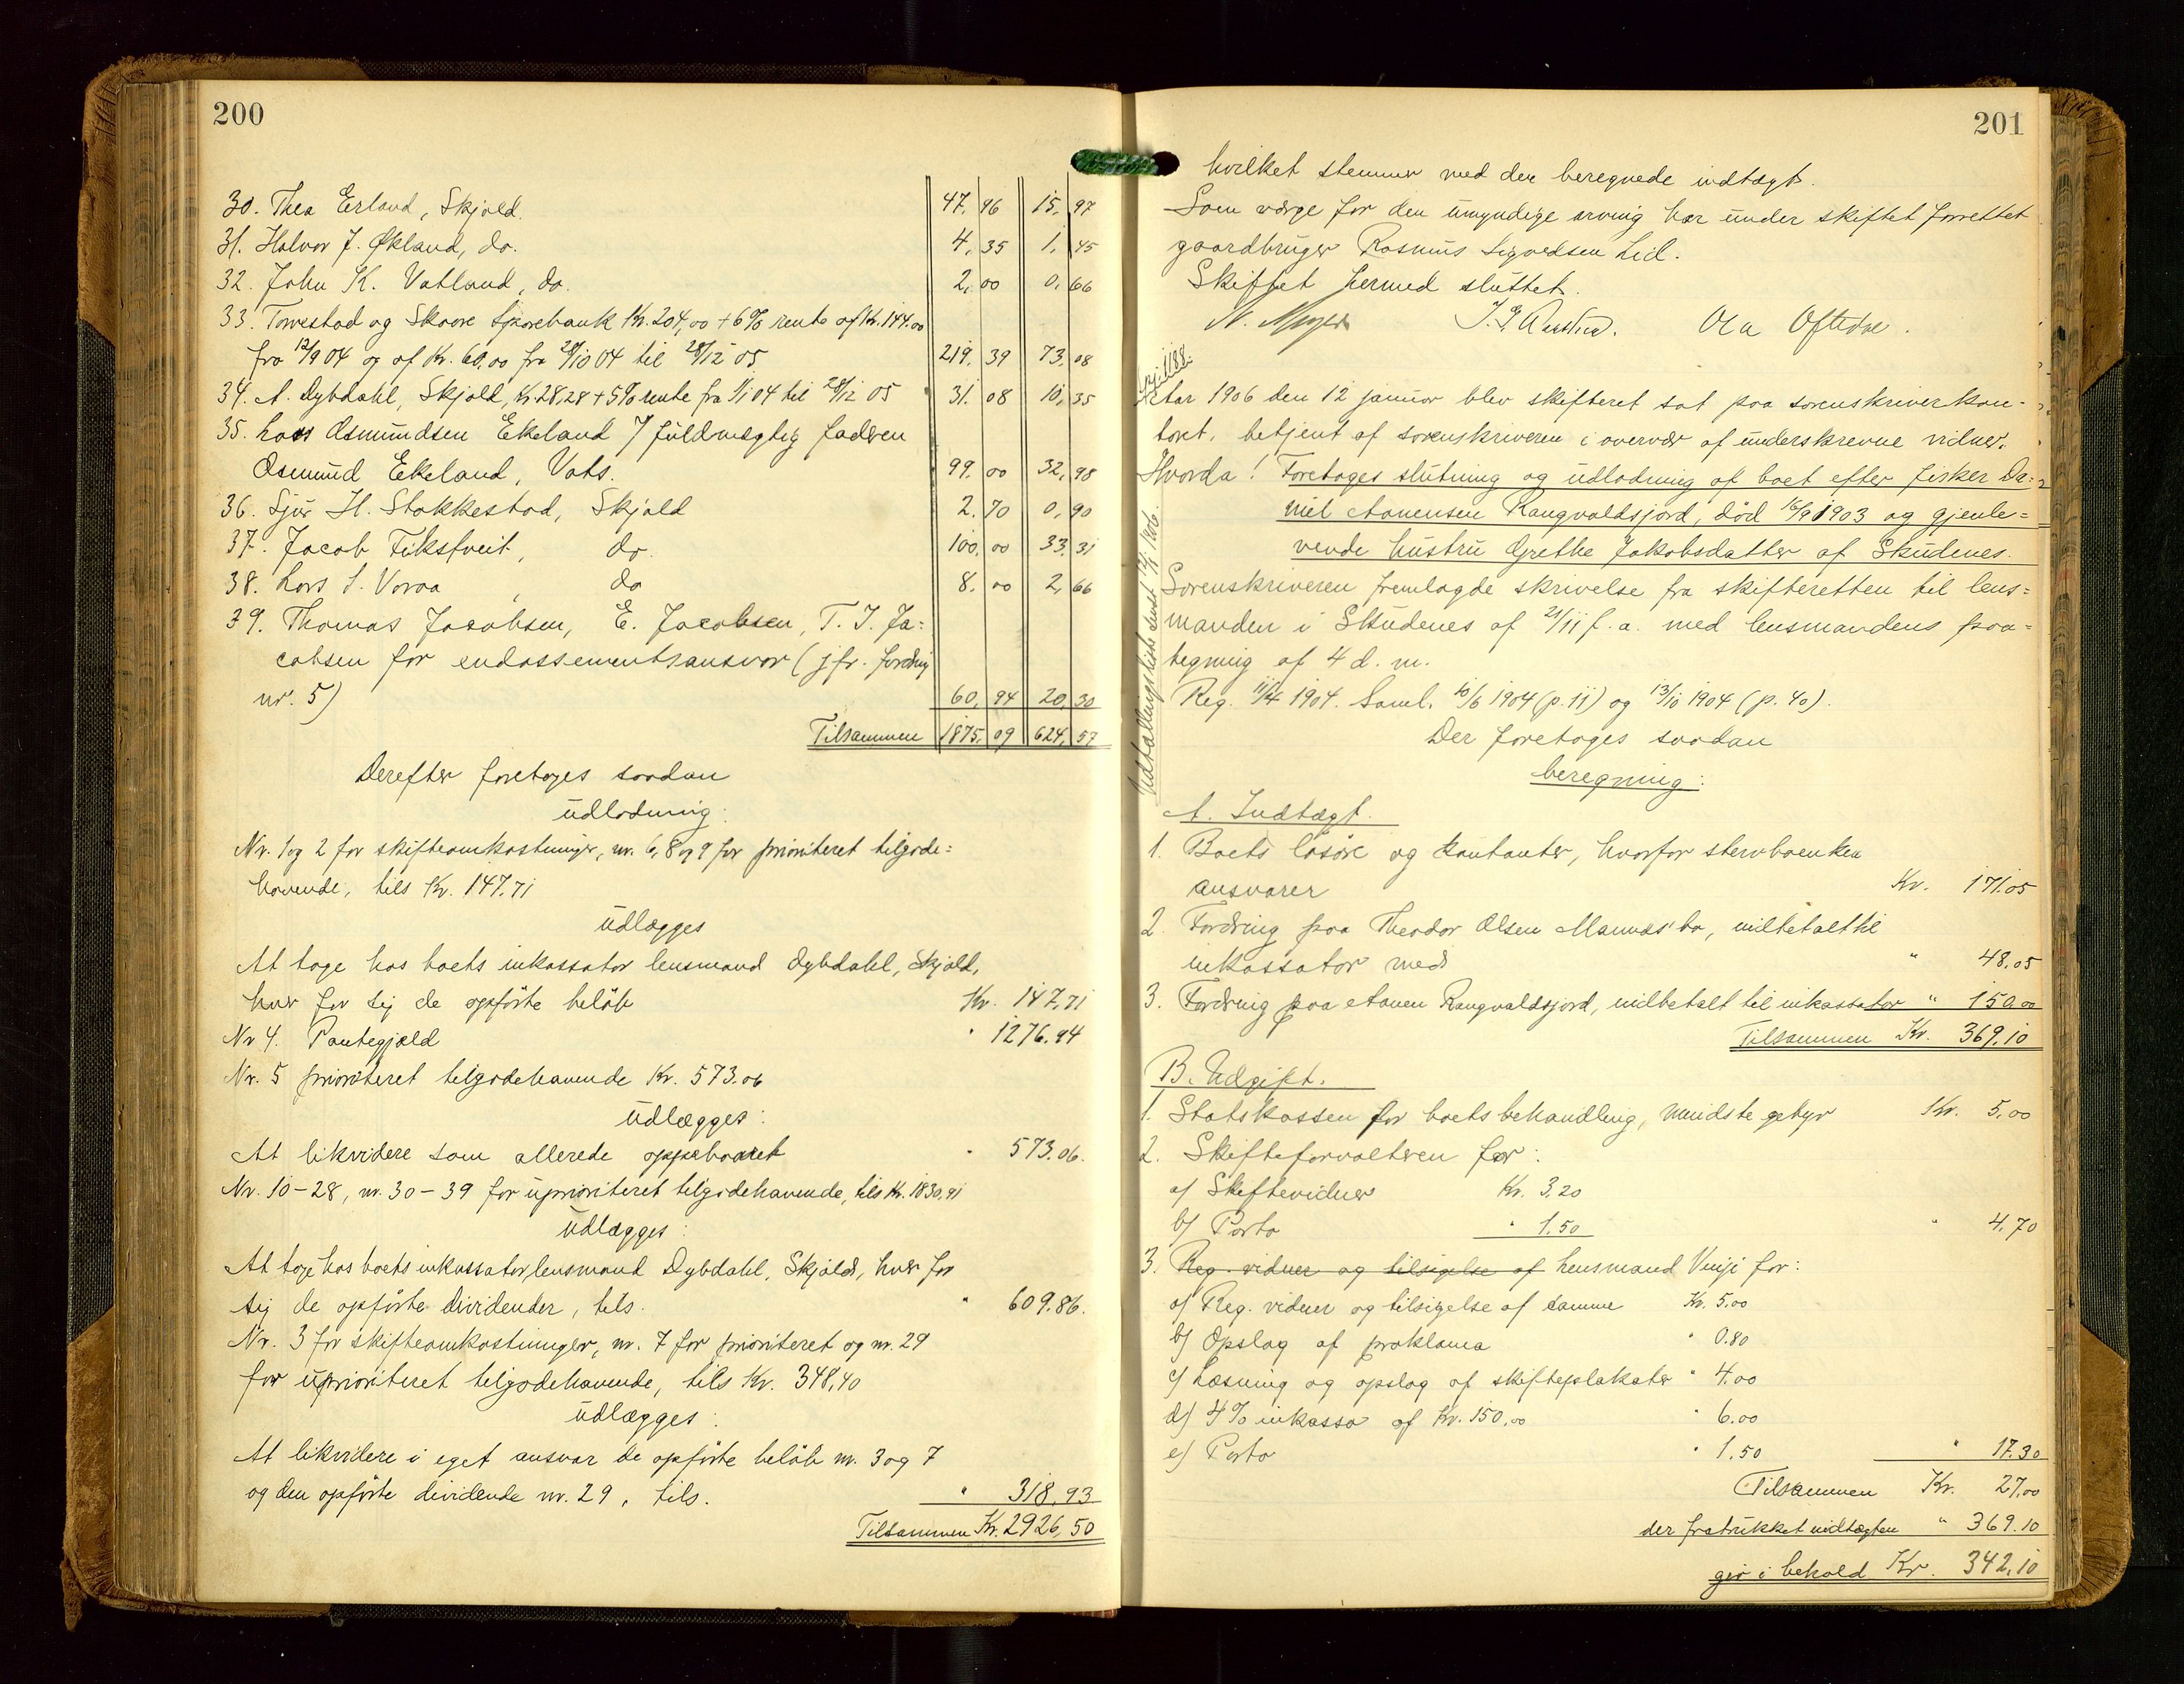 200
30. Thea Erland, Skjold. 47,96 15,97
31. Halvor J. Økland, do. 4,35 1,45
32. John K. Vatland, do. 2,00 0,66
33. Torvestad og Skaare Sparebank Kr. 204,00 + 6% rente af Kr. 144.00
fra 12/9 04 og af Kr. 60,00 fra 28/10 04 til 28/12 05 219,39 73,08
34. A. Dybdahl, Skjold, Kr. 28,28 + 5% rente fra 1/1 04 til 28/12 05 31.08 10,35
35. Lars Osmundsen Ekeland v/ fuldmægtig faderen
Osmund Ekeland, Vats. 99,00 32,98
36. Sjur H. Stakkestad, Skjold 2.70 0,90
37. Jacob Fikstveit, do. 100,00 33,31
38. Lars S. Voraa, do 8,00 2,66
39. Thomas Jacobsen, E. Jacobsen, T. J. Ja=
cobsen for endossementsansvar (jfr. fordring
nr. 5) 60,94 20,30
Tilsammen 1875,09 624,57
Derefter foretages saadan
udlodning:
Nr. 1 og 2 for skifteomkostninger, nr. 6, 8 og 9 for prioriteret tilgode=
havende, tils Kr. 147,71
udlægges
At tage hos boets inkassator lensmand Dybdahl, Skjold,
hver for sig de opførte beløb Kr. 147,71
Nr 4. Pantegjæld " 1276.94
Nr. 5 prioriteret tilgodehavende Kr. 573.06
udlægges:
At likvidere som allerede oppebaaret " 573.06.
Nr. 10-28, nr. 30-39 for uprioriteret tilgodehavende, tils Kr. 1830,91
udlægges:
At tage hos boets inkassator, lensmand Dybdahl, Skjold, hver for
sig de opførte dividender, tils. " 609.86.
Nr. 3 for skifteomkostninger, nr. 7 for prioriteret og nr. 29
for uprioriteret tilgodehavende, tils Kr. 348,40
udlægges:
At likvidere i eget ansvar de opførte beløb nr. 3 og 7
og den opførte dividende nr. 29, tils. " 318,93
Tilsammen Kr. 2926,50
201
hvilket stemmer med den beregnede indtægt.
Som værge for den umyndige arving har under skiftet forrettet
gaardbruger Rasmus Sigvedsen Lid.
Skiftet hermed sluttet.
Ola Oftedæ.
Aar 1906 den 12 januar blev skifteret sat paa sorenskriverkon-
toret, betjent af sorenskriveren i overvær af underskrevne vidner.
Hvorda: Foretoges slutning og udlodning af boet efter fisker Da=
niel Aanensen Rangvaldsjord, død 16/9 1903 og gjenle=
vende hustru Grethe Jakobsdatter af Skudenes.
Sorenskriveren fremlagde skrivelse fra skifteretten til lens=
manden i Skudenes af 21/11 f. a. med lensmandens paa=
tegning af 4 d. m.
Reg. 11/4 1904. Saml. 10/6 1904 (p. 11) og 13/10 1904 (p. 40).
Der foretoges saadan
beregning:
A. Indtægt.
1. Boets løsøre og kontanter, hvorfor stervboenken
ansvarer Kr. 171.05
2. Fordring paa Theodor Olsen Mannes' bo, indbetalt til
inkassator med " 48.05
3. Fordring paa Aanen Rangvaldsjord, indbetalt til inkassator " 150.00
Tilsammen Kr. 369.10
B. Udgift.
1. Statskassen for boets behandling, mindste gebyr Kr. 5,00
2. Skifteforvalteren for:
a) Skiftevidner Kr. 3,20
b) Porto " 1.50 " 4.70
3. Reg. vidner og tilsigelse af Lensmand Vinje for:
a) Reg. vidner og tilsigelse af samme Kr. 5.00
b) Opslag af proklama " 0.80
c) Læsning og opslag af skifteplakater " 4.00
d) 4% inkasso af Kr. 150,00 " 6.00
e) Porto " 1.50 " 17.30
Tilsammen Kr. 27,00
der fratrukket indtægten " 369.10
gir i behold Kr. 342,10